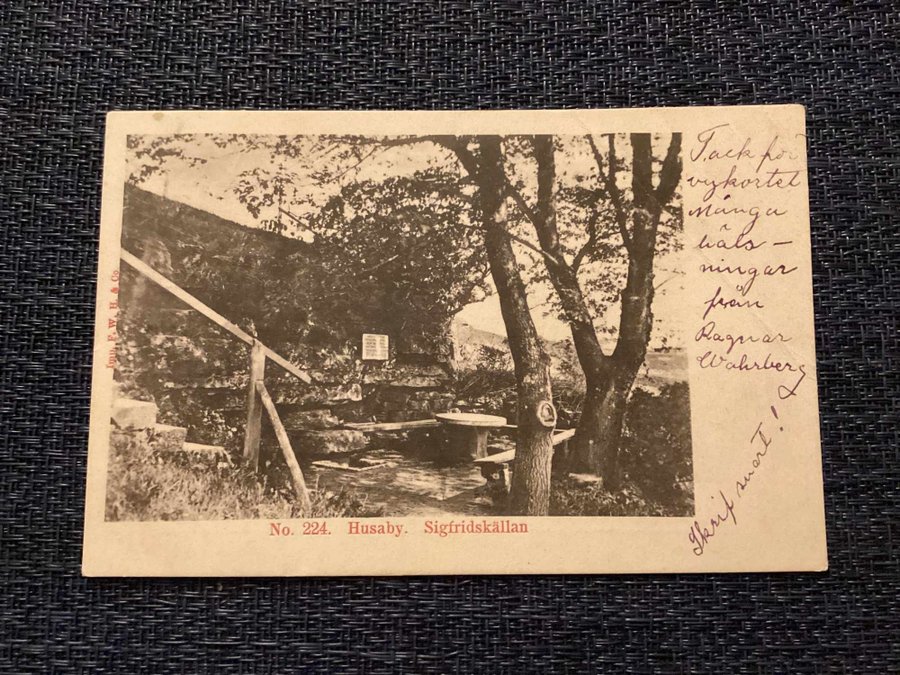 Tack för
vykortet
Många
häls-
ningar
från
Ragnar
Wahrberg
Skrif snart!
No. 224. Husaby. Sigfridskällan
Imp. F. W. H. & Co.